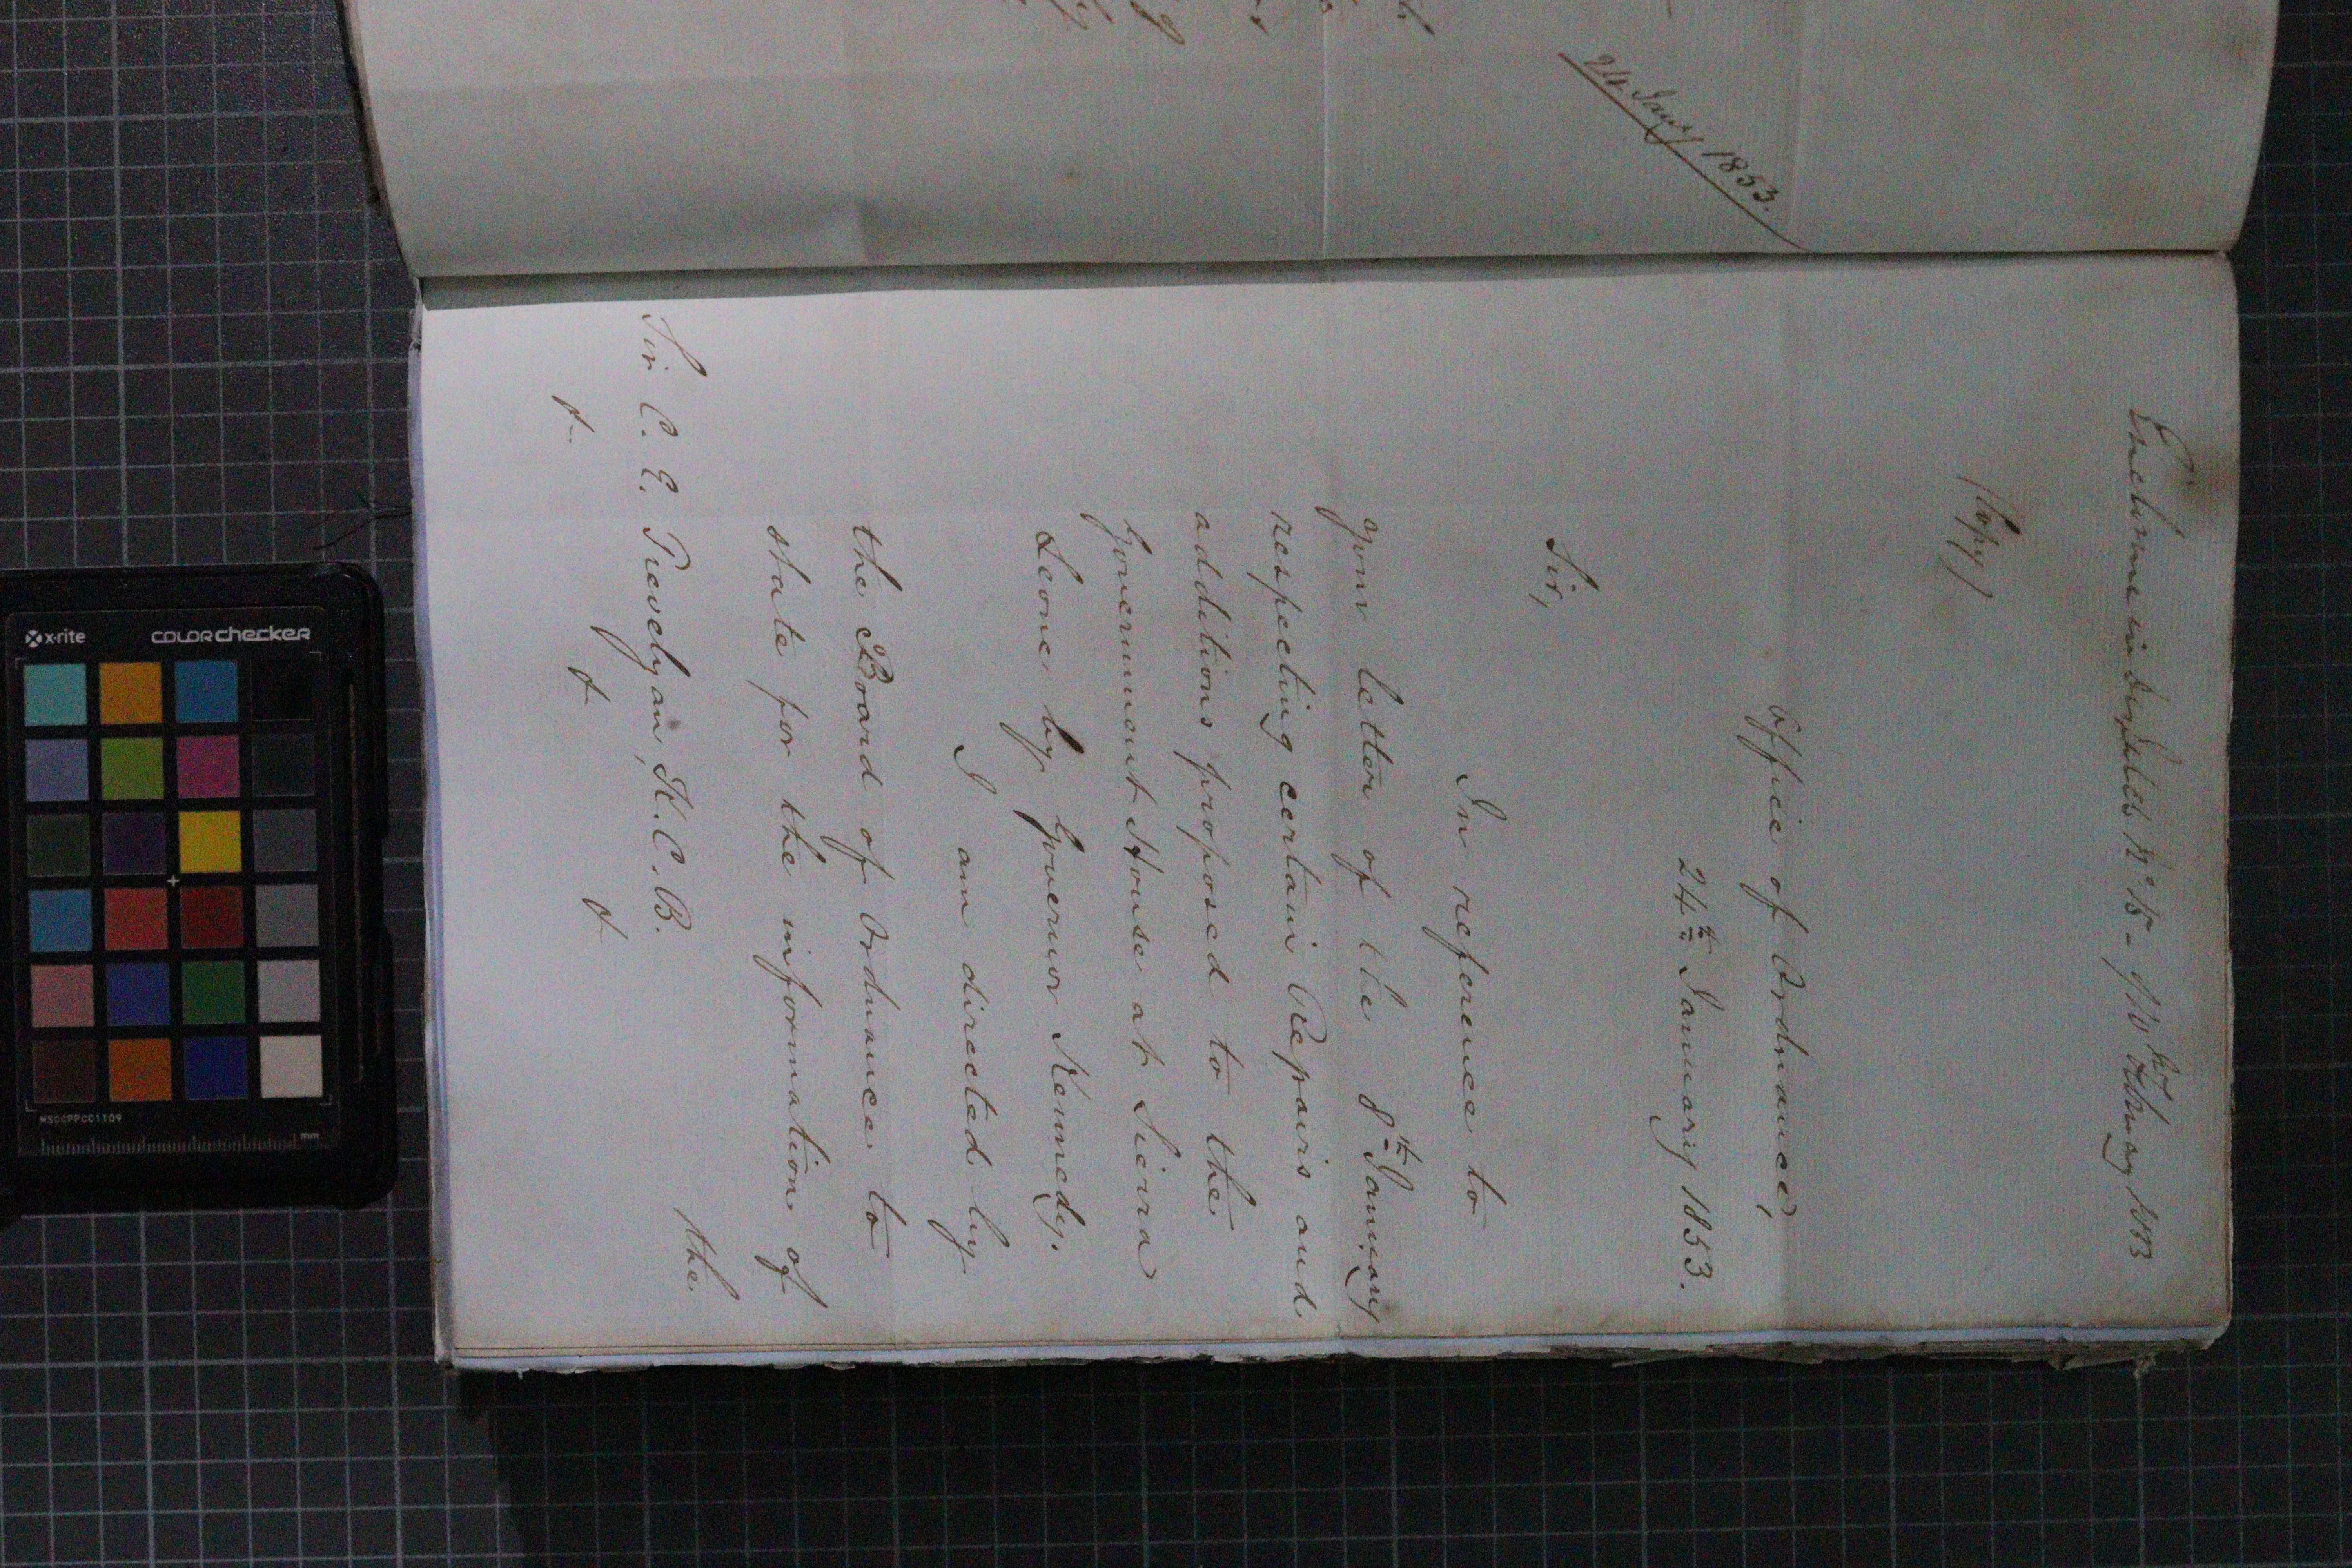 24 Jany 1853.
Enclosure in Despatch No 15 - of 10 February 1853
(Copy)
Office of Ordnance,
24th January 1853.
Sir,
In reference to
your letter of the 8th January
respecting certain Repairs and
additions proposed to the
Government House at Sierra
Leone by Governor Kennedy.
I am directed by
the Board of Ordnance to
state for the information of
the
Sir C. E. Trevelyan, K.C.B.
&. & &
x-rite
colorchecker
MSCCPPCC1109
mm